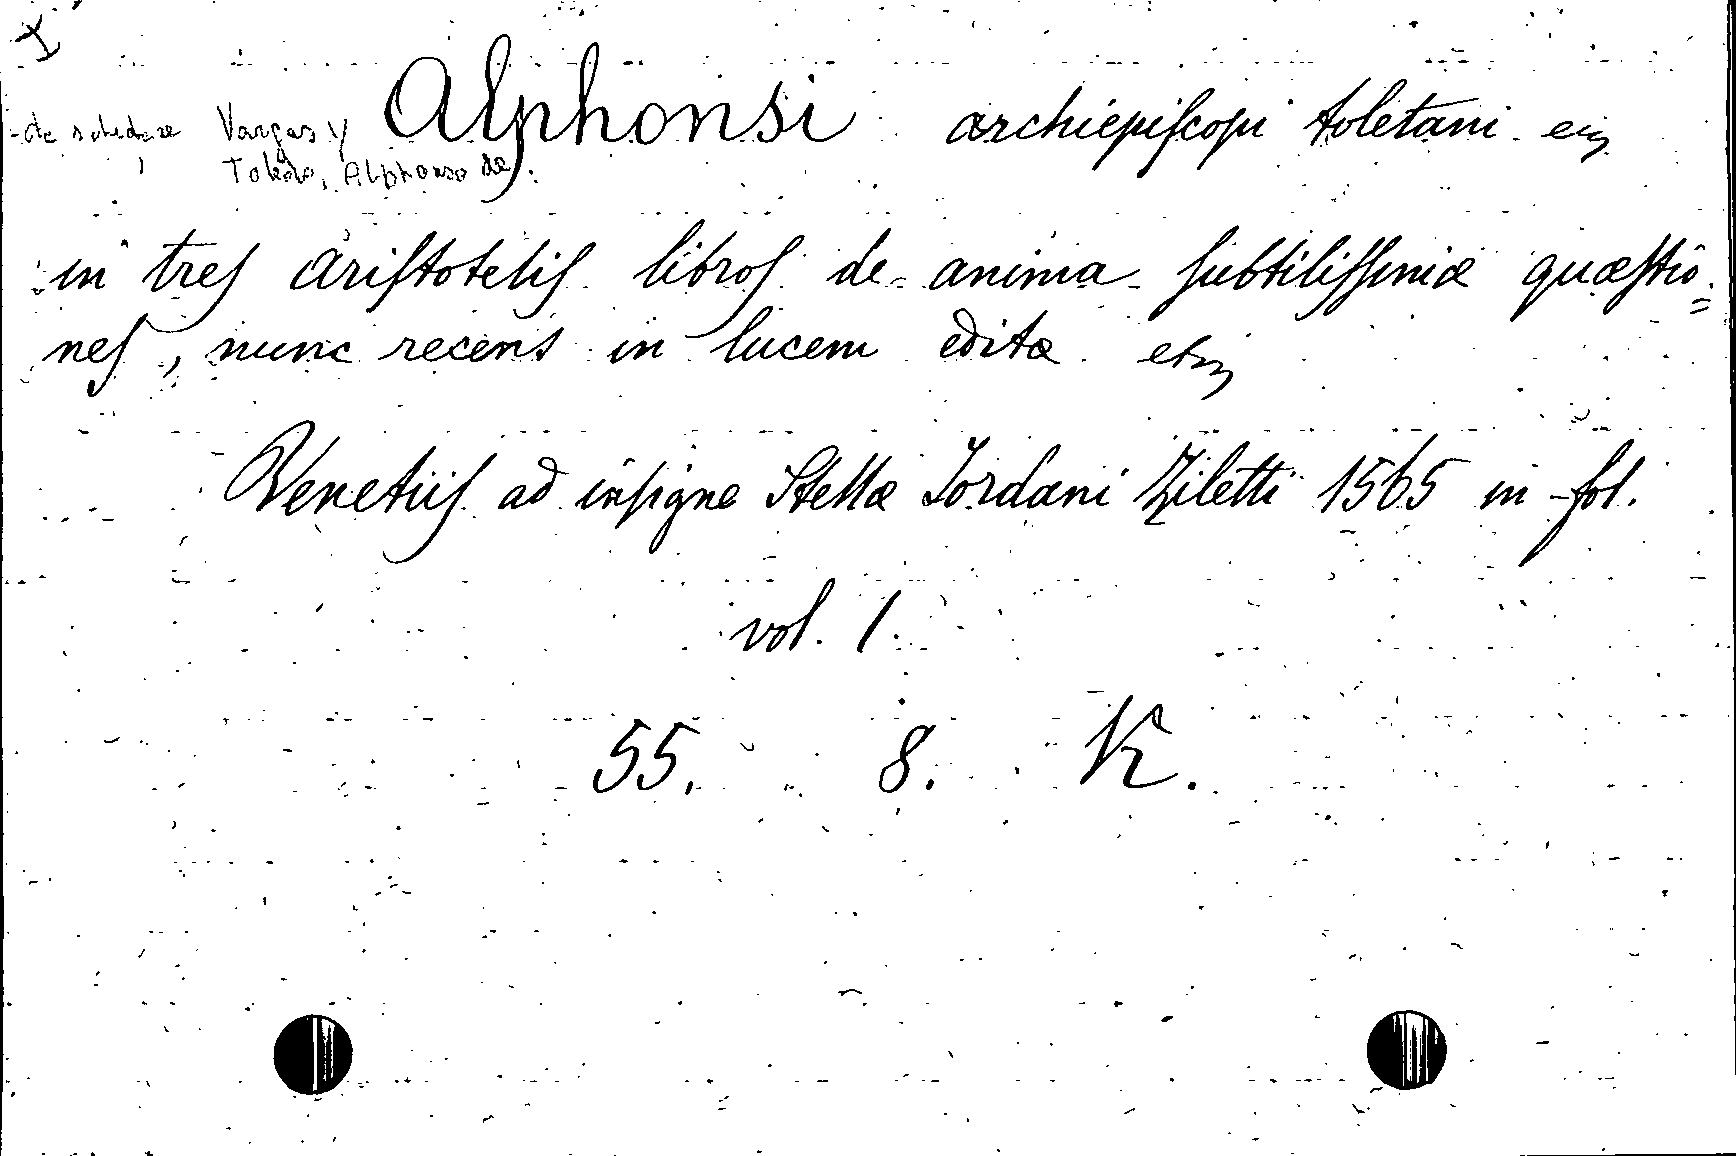 - da schedare Vargas y
Toledo, Alphonso de.
Alphonsi archiepiscopi toletani
in tres Aristotelis libros de anima subtilissimæ quæstio=
nes, nunc recens in lucem editæ etc
Venetiis ad insigne Stellæ Iordani Ziletti 1565 in-fol.
vol. 1.
55. 8. K.